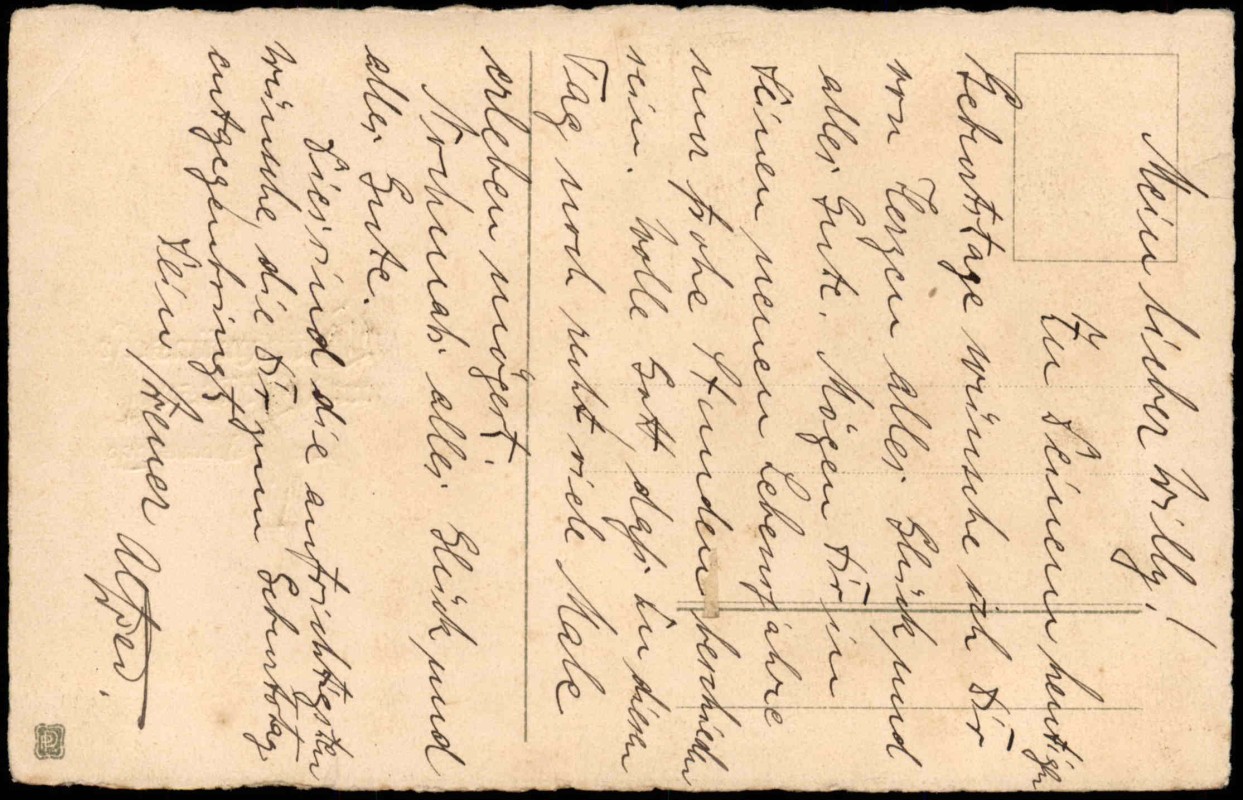 Mein lieber Willy!
Zu Deinem heutigen
Geburtstage wünsche ich Dir
von Herzen alles Glück und
alles Gute. Mögen Dir in
Deinem neuen Lebensjahre
nur frohe Stunden beschieden
sein. Wolle Gott, daß Du diesen
Tag noch recht viele Male
erleben mögest.
Nochmals alles Glück und
alles Gute.
Dies sind die aufrichtigsten
Wünsche, die Dir zum Geburtstag
entgegenbringt
Dein treuer Alfred.